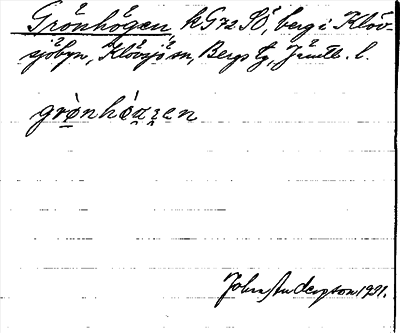 Grönhögen, kG72SÖ, berg i Klöv-
sjöbyn, Klövsjö sn, Bergs tg, Jämtl. l.
grònhö́gen
John Anderson 1931.